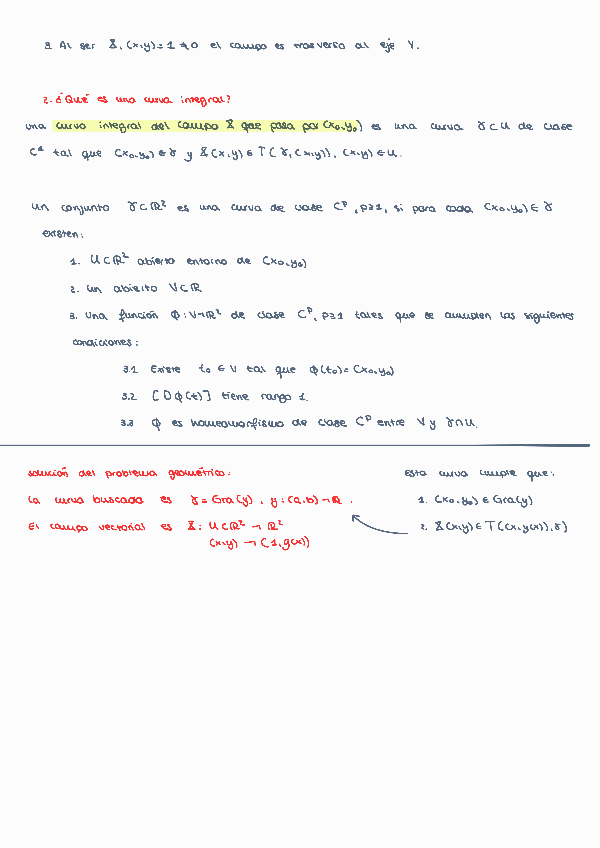 2. Al ser X₁(x,y)=1≠0 el campo es trasverso al eje Y.
2. ¿Qué es una curva integral?
una curva integral del campo X que pasa por (x₀,y₀) es una curva γ⊂U de clase
C¹ tal que (x₀,y₀)∈γ y X(x,y)∈T(γ,(x,y)), (x,y)∈U.
Un conjunto γ⊂ℝ² es una curva de clase Cᵖ, p≥1, si para cada (x₀,y₀)∈γ
existen:
1. U⊂ℝ² abierto entorno de (x₀,y₀)
2. un abierto V⊂ℝ
3. Una función ϕ:V→ℝ² de clase Cᵖ, p≥1 tales que se cumplen las siguientes
condiciones:
3.1 Existe t₀∈V tal que ϕ(t₀)=(x₀,y₀)
3.2 [Dϕ(t)] tiene rango 1.
3.3 ϕ es homeomorfismo de clase Cᵖ entre V y γ∩U.
solución del problema geométrico:
La curva buscada es γ=Gra(y), y:(a,b)→ℝ.
El campo vectorial es X: U⊂ℝ²→ℝ²
(x,y)→(1,g(x))
Esta curva cumple que:
1. (x₀,y₀)∈Gra(y)
2. X(x,y)∈T((x,y(x)),γ)